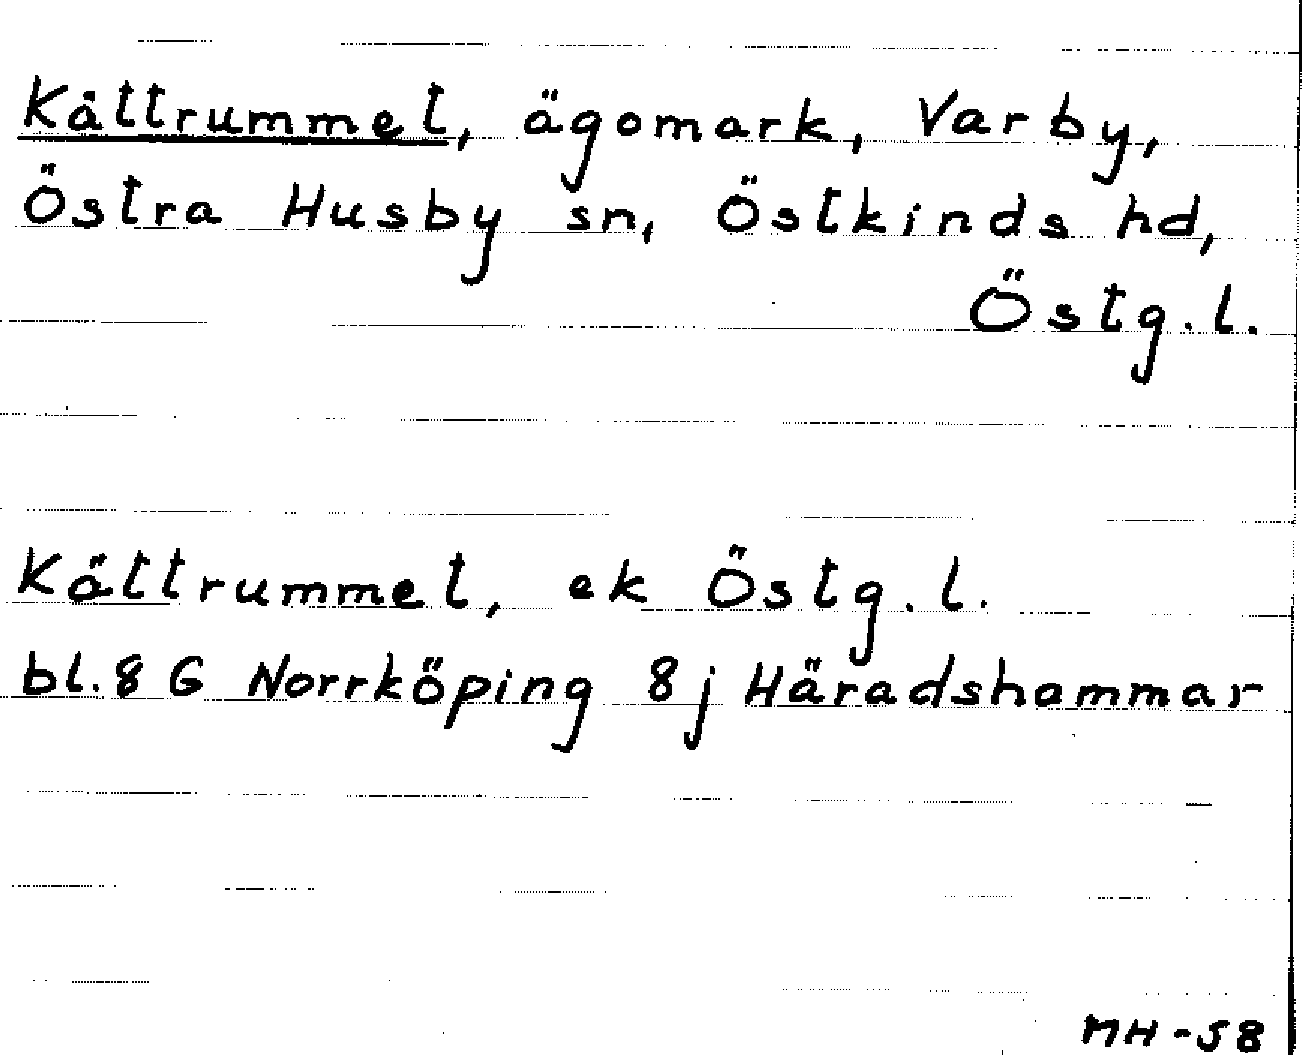 Kåttrummet, ägomark, Varby,
Östra Husby sn, Östkinds hd,
Östg.l.
Kåttrummet, ek Östg.l.
bl.8 G Norrköping 8j Häradshammar
MH-58